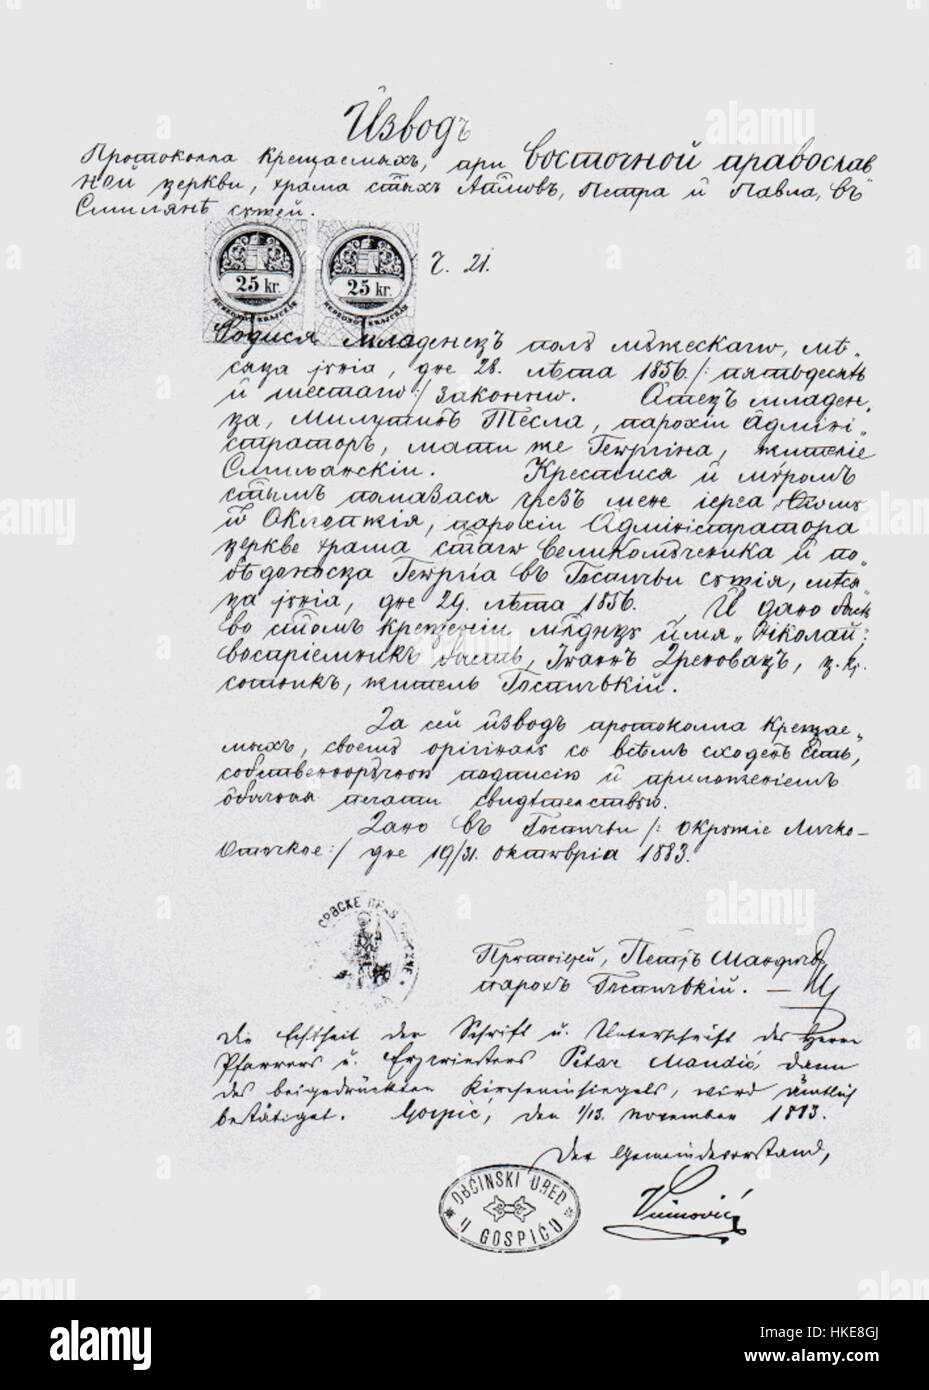 Изводъ
Протоколла крещаемыхъ, при Восточной православ
ной церкви, храма стыхъ Апілвъ, Петра и Павла, въ
Смилянѣ сущей.
25 kr. 25 kr. č. 21.
Родися младенецъ полѫ мѫжескагω, мѣ„
сяца јунія, дне 28. лѣта 1856. /: пятьдесять
и шестагω :/ законнω. Отецъ младен„
ца, Милутинъ Тесла, парохіи Адміні„
страторъ, мати же Геωргіна, жителіе
Смиљанскіи. Крестися и мѵромъ
стымъ помазася чрезъ мене іереа
Оклопжія, парохіи Адміністратора
церкве храма стагω Великомѫченика и по„
бѣдоносца Геωргіа въ Госпичѣ сущія, мѣся„
ца јунія, дне 29. лѣта 1856. И дано бысть
во стомъ крещеніи младенцѫ имя „Ніколай;
воспріемникъ бысть, Іωаннъ Дреновацъ, ц. кр.
сотникъ, житель Госпичькій.
За сей изводъ протоколла крещае„
мыхъ, своемѫ орігіналѫ со всѣмъ сходенъ єсть,
собственнорѫчною подписію и приложеніемъ
обычныя печати свидѣтелствѫю.
Дано въ Госпичѣ /: окрѫжіе Личко-
Оточкое :/ дне 19/31. октωвріа 1883.
СРБСКЕ ПРАВ
Протоіерей, Петръ Мандичъ
парохъ Госпичькій.
Die Echtheit der Schrift u. Unterschrift des Herrn
Pfarrers u. Erzpriesters Petar Mandić, dann
des beigedrückten Kircheninsiegels, wird ämtlich
bestätiget. Gospić, den 1/13. November 1883.
Der Gemeindevorstand,
OBĆINSKI URED
U GOSPIĆU
Vuinović
alamy
Image ID: HKE8GJ
www.alamy.com